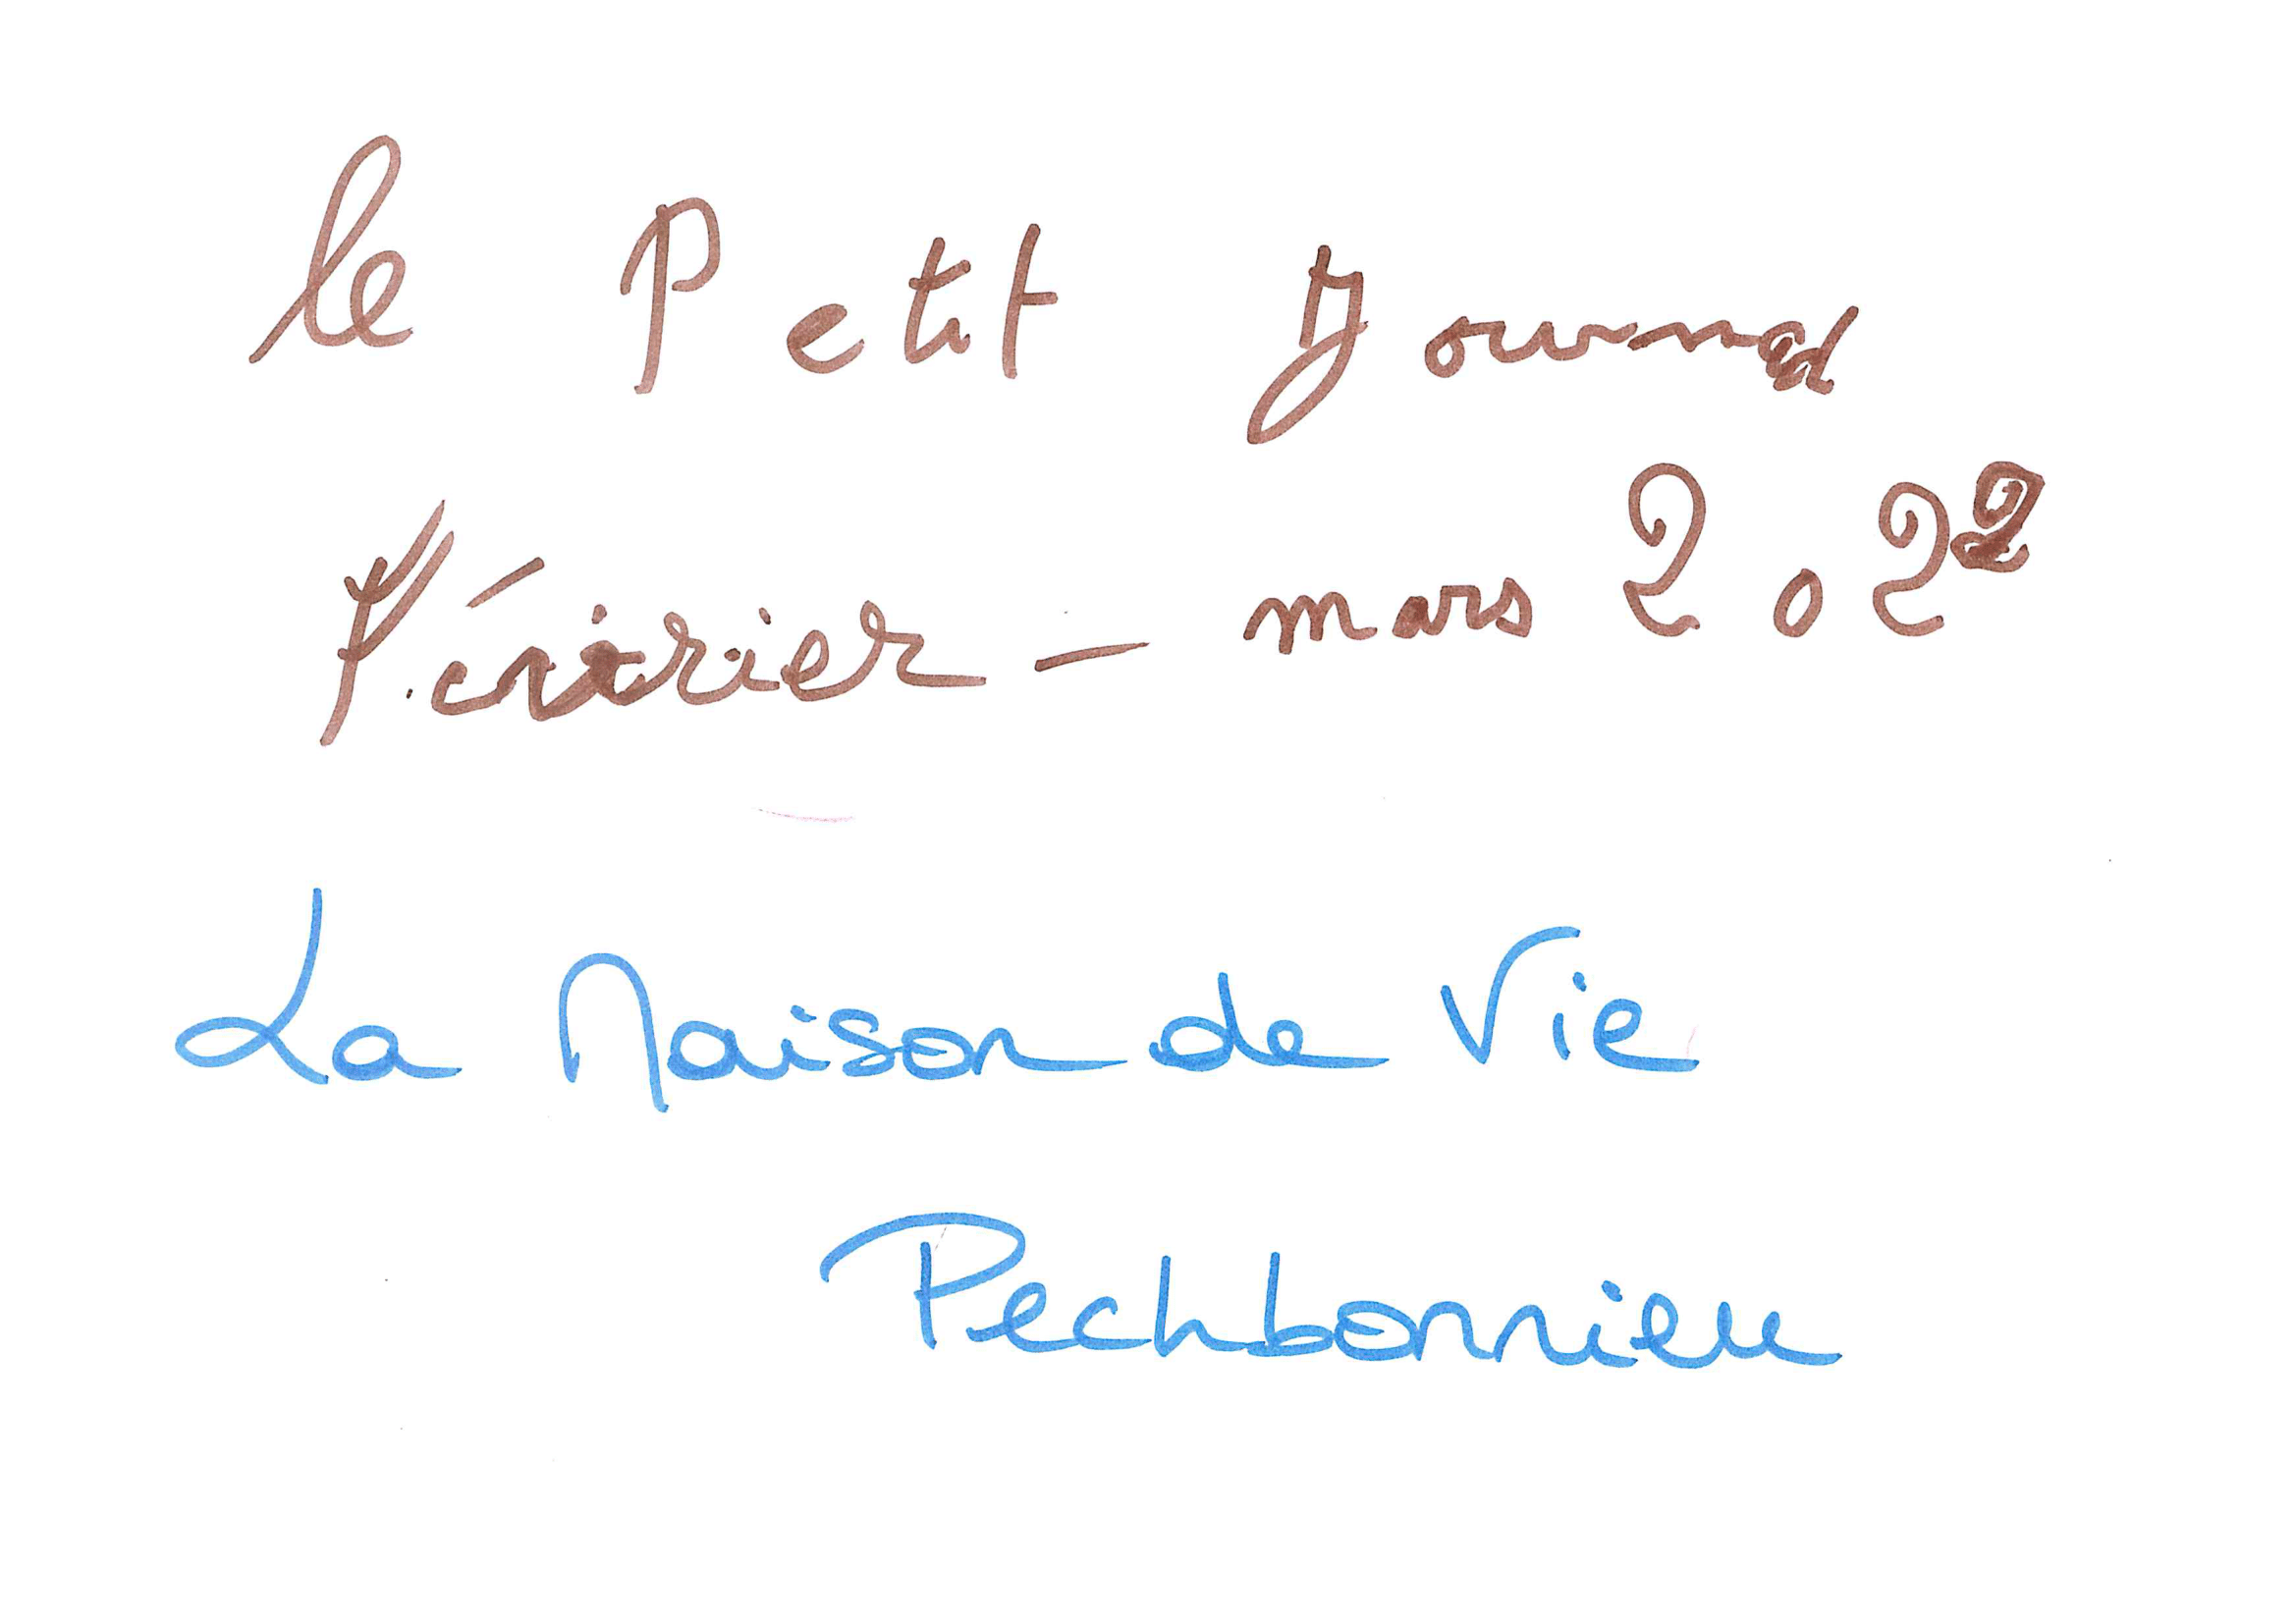 le Petit Journal
Février - mars 2022
La Maison de Vie
Pechbonnieu